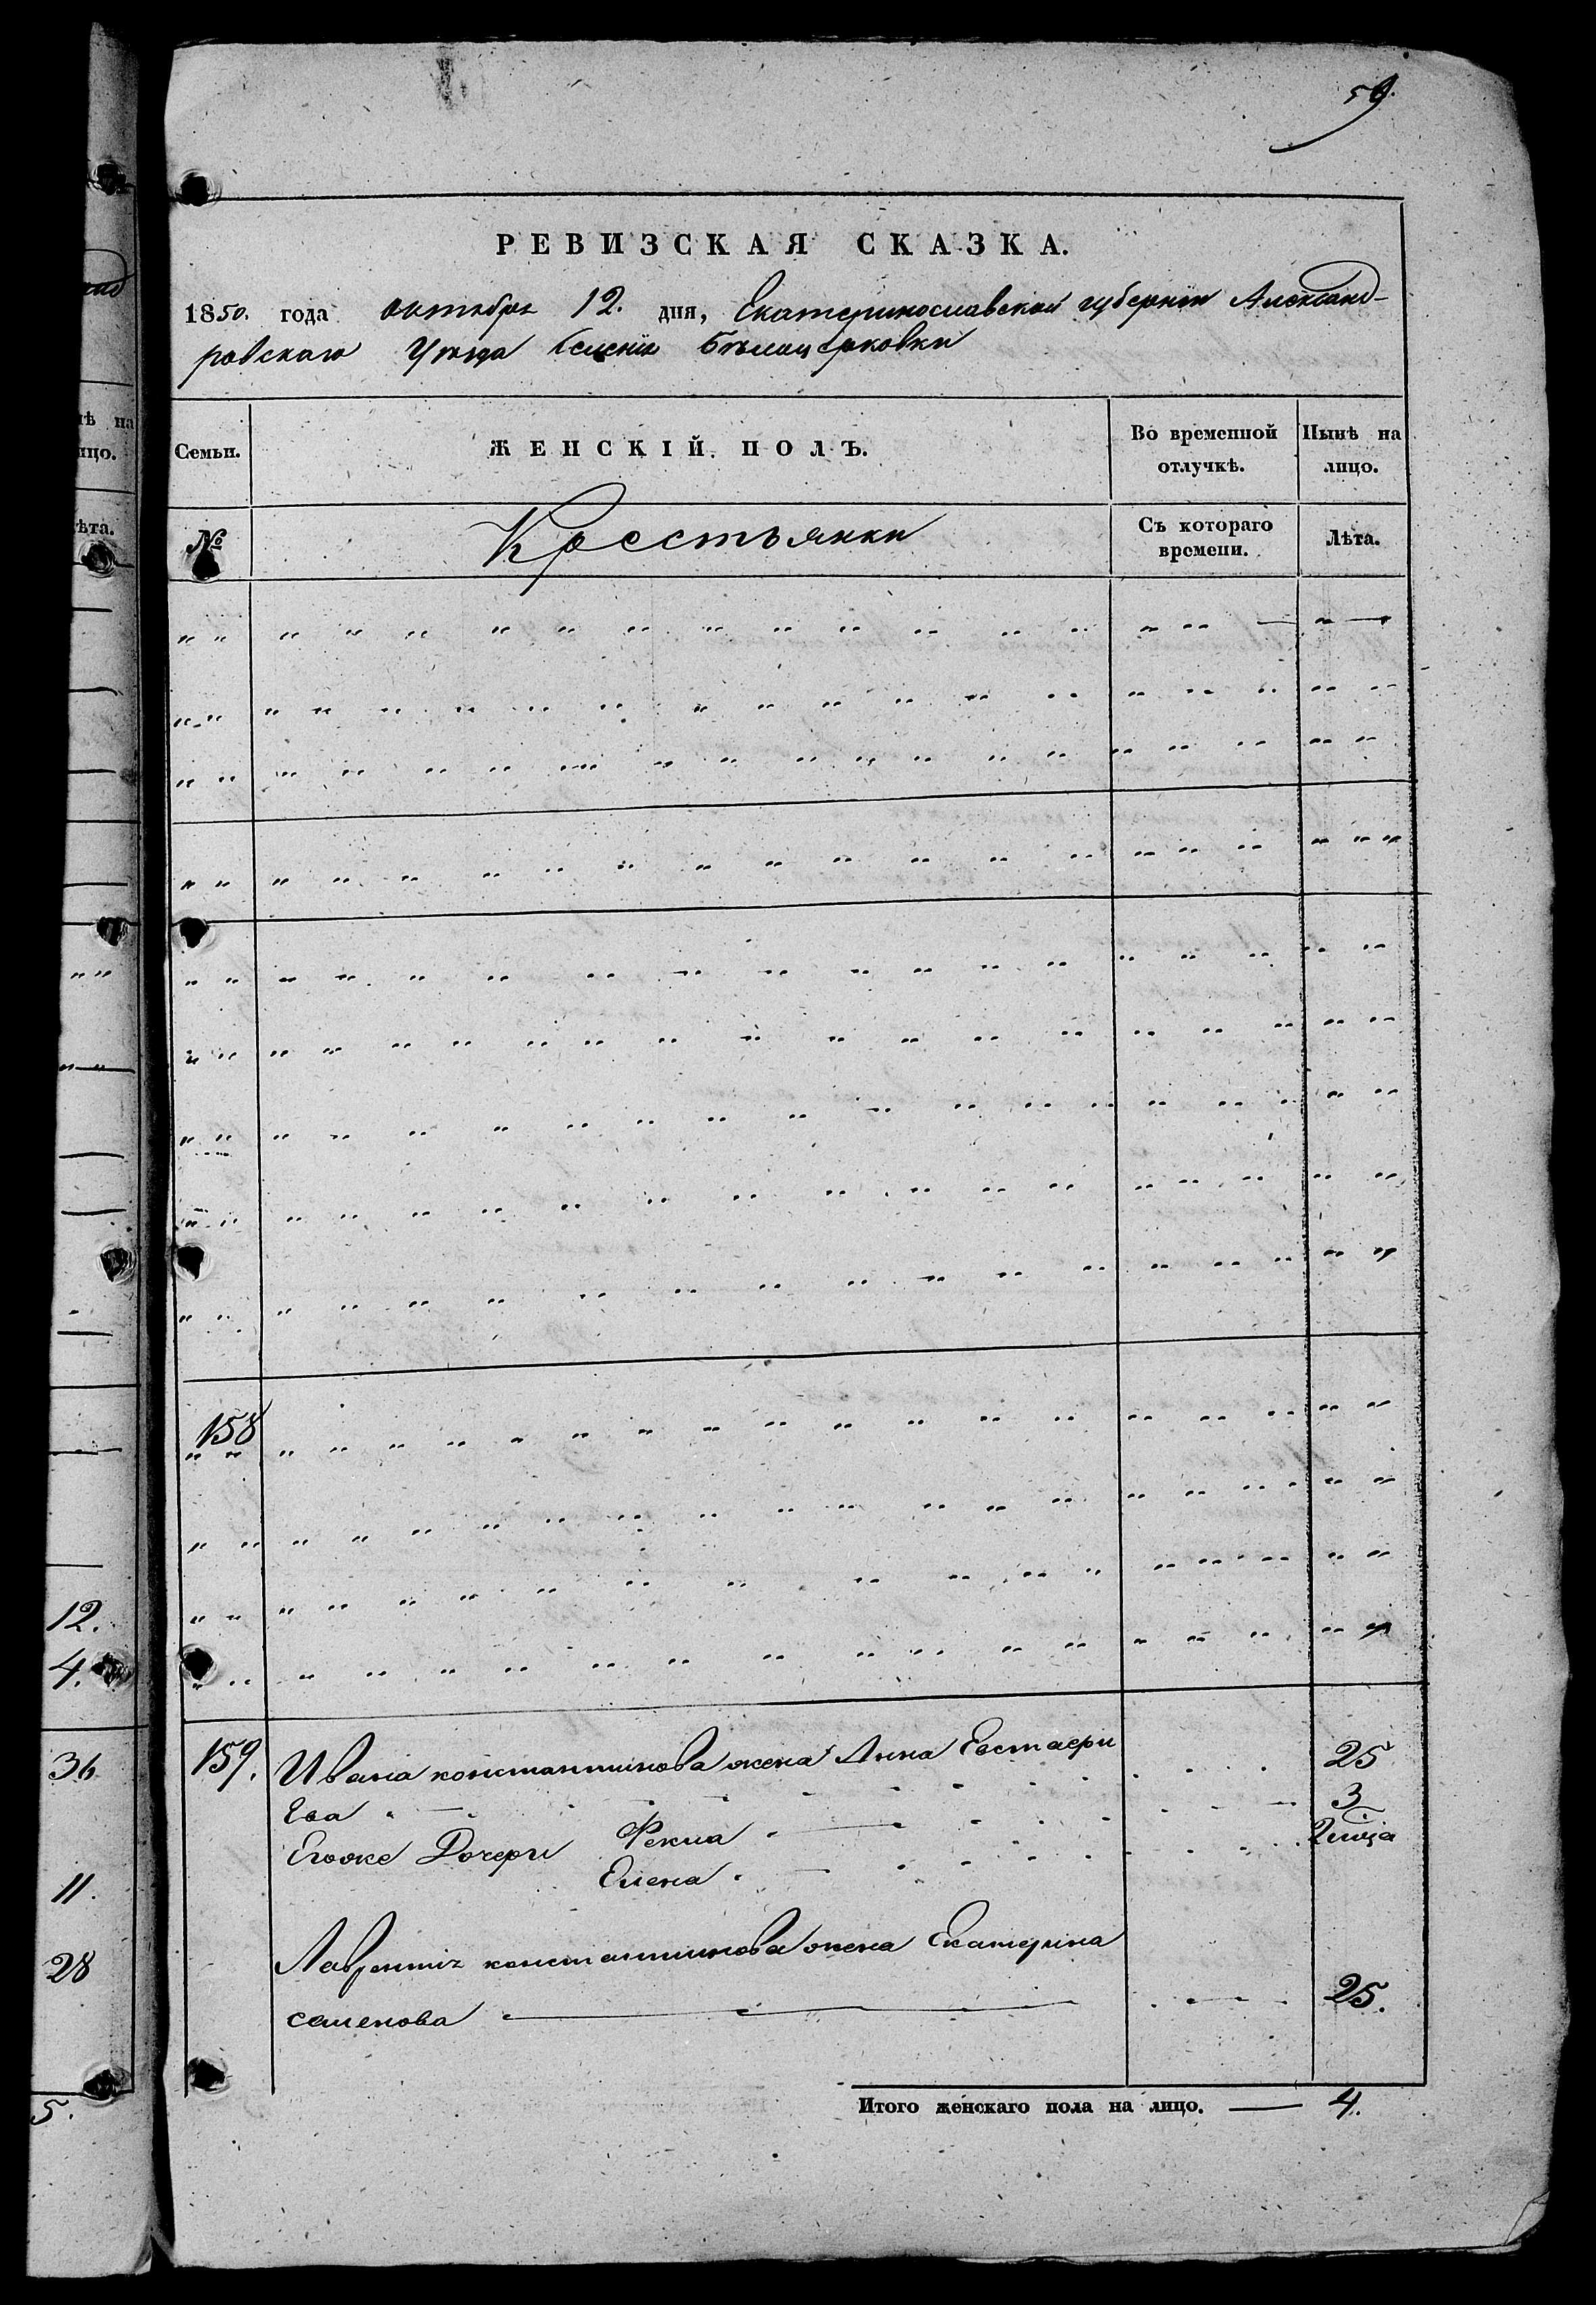 59.
РЕВИЗСКАЯ СКАЗКА.
1850. года октября 12. дня, Екатеринославской губернии Александ-
ровскаго Уезда Селения Белоцерковки
Семьи.
ЖЕНСКІЙ ПОЛЪ.
Во временной отлучкѣ.
Нынѣ на лицо.
№
Крестьянки
Съ котораго времени.
Лѣта.
158
159. Ивана константинова жена Анна Евстаери 25
Ева 3
Егоже Дочери Фекла
Елена
Лаврентiя константинова жена Екатерина
семенова 25.
Итого женскаго пола на лицо. 4.
нѣ на
ицо.
ѣта.
12.
4.
36
11.
28
5.